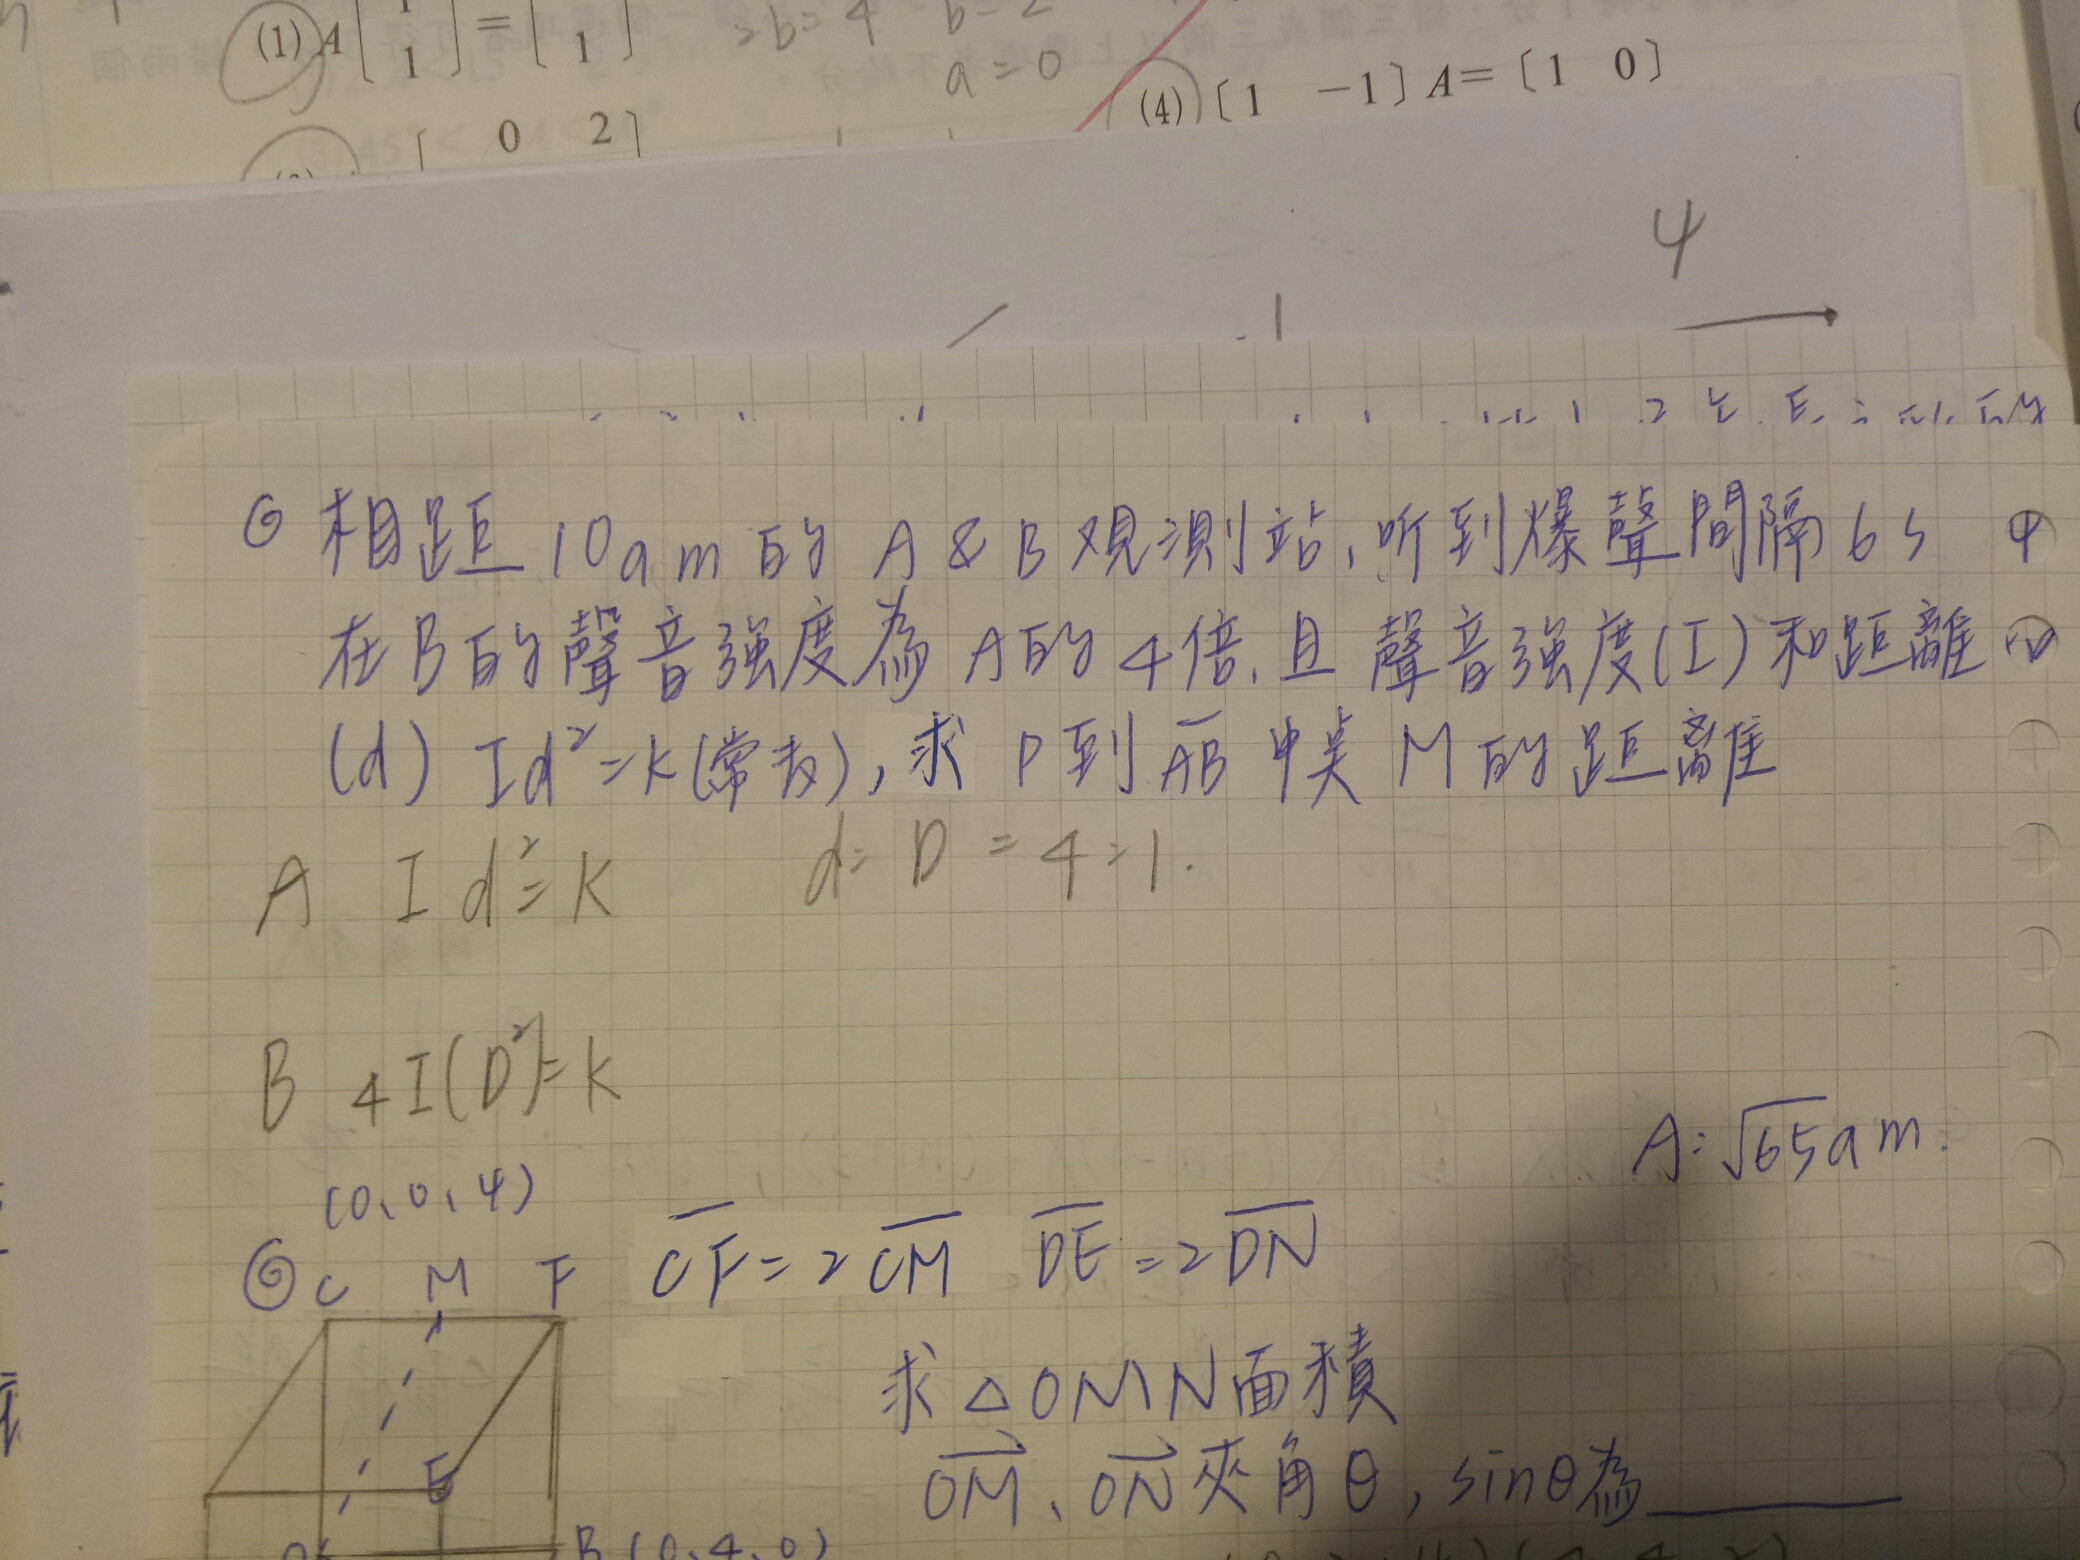 (1) A [ 1 1 ] = [ 1 ] 2b=4 b=2
a=0
(4) [1 -1] A = [1 0]
0 2
4
1
◎ 相距 10a m 的 A & B 观測站、听到爆聲間隔 6s
在B的聲音強度為 A的 4倍、且 聲音強度(I)和距離
(d) Id²=k(常数), 求 P到 AB 中点 M 的距離
A Id²=K d:D=4:1.
B 4I(D²)=K
A:√65am.
(0、0、4)
◎ C M F CF=2CM DE=2DN
求△OMN面積
E OM、ON夾角θ, sinθ為
B (0、4、0)